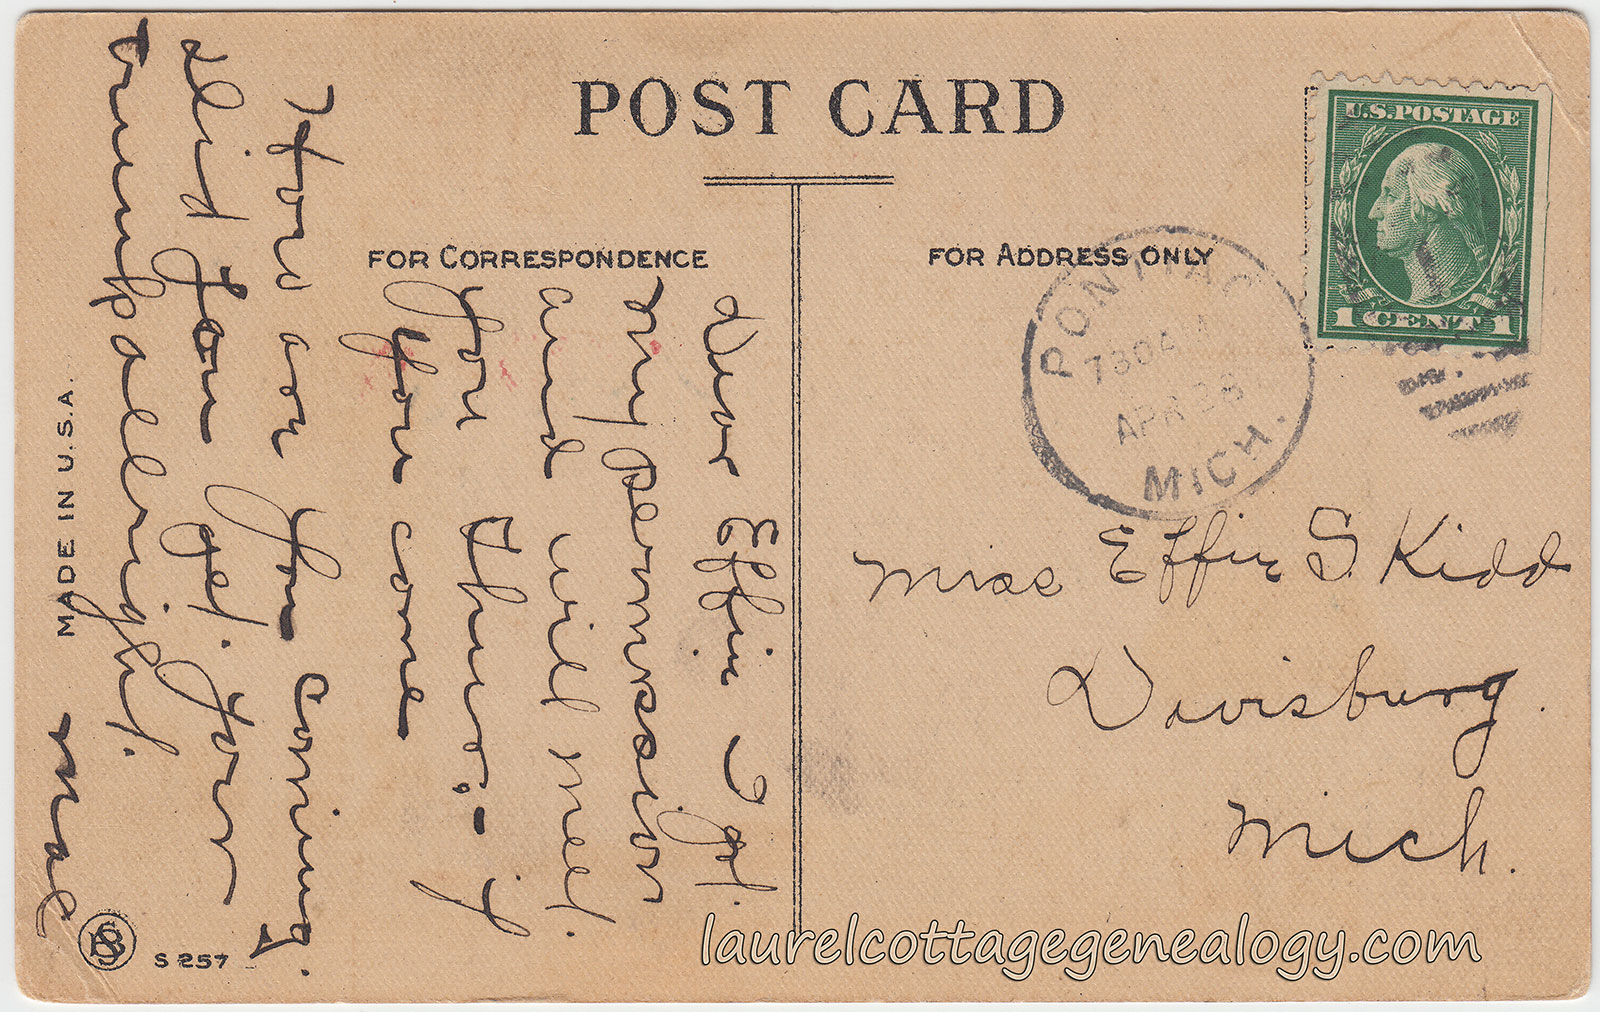 POST CARD
FOR CORRESPONDENCE
FOR ADDRESS ONLY
U.S. POSTAGE
1 CENT 1
PONTIAC
730 A
APR
MICH.
Dear Effie I got
my permission
and will meet
you there. - if
you come
How are you coming.
did you get your
trunk allright.
Mae
Miss Effie S. Kidd
Davisburg.
Mich.
MADE IN U.S.A.
S 257
laurelcottagegenealogy.com